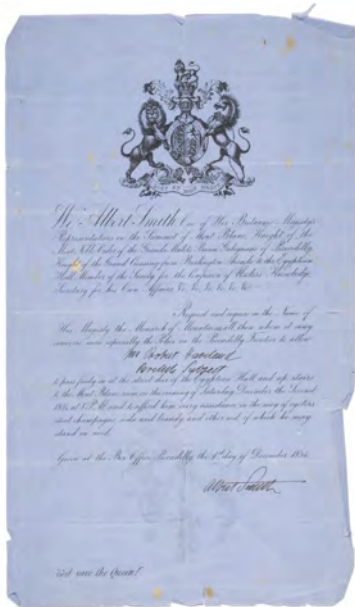 We Albert Smith One of Her Britannic Majesty's
Representatives on the Summit of Mont Blanc, Knight of the
Most Noble Order of the Grands Mulets, Baron Galignani of Piccadilly,
Knight of the Grand Crossing from Burlington Arcade to the Egyptian
Hall, Member of the Society for the Confusion of Useless Knowledge,
Secretary for his Own Affairs &c. &c. &c. &c. &c.
Request and require in the Name of
His Majesty the Monarch of Mountains, all those whom it may
concern, more especially the Police on the Piccadilly Frontier to allow
Mr
British Subject
to pass freely in at the street door of the Egyptian Hall, and up stairs
to the Mont Blanc room on the evening of Saturday December the Second
1854 at 8 P.M. and to afford him every assistance in the way of oysters
stout champagne, soda and brandy and other aid of which he may
stand in need.
Given at the Box Office, Piccadilly, the 1st day of December 1854.
Albert Smith
God save the Queen!